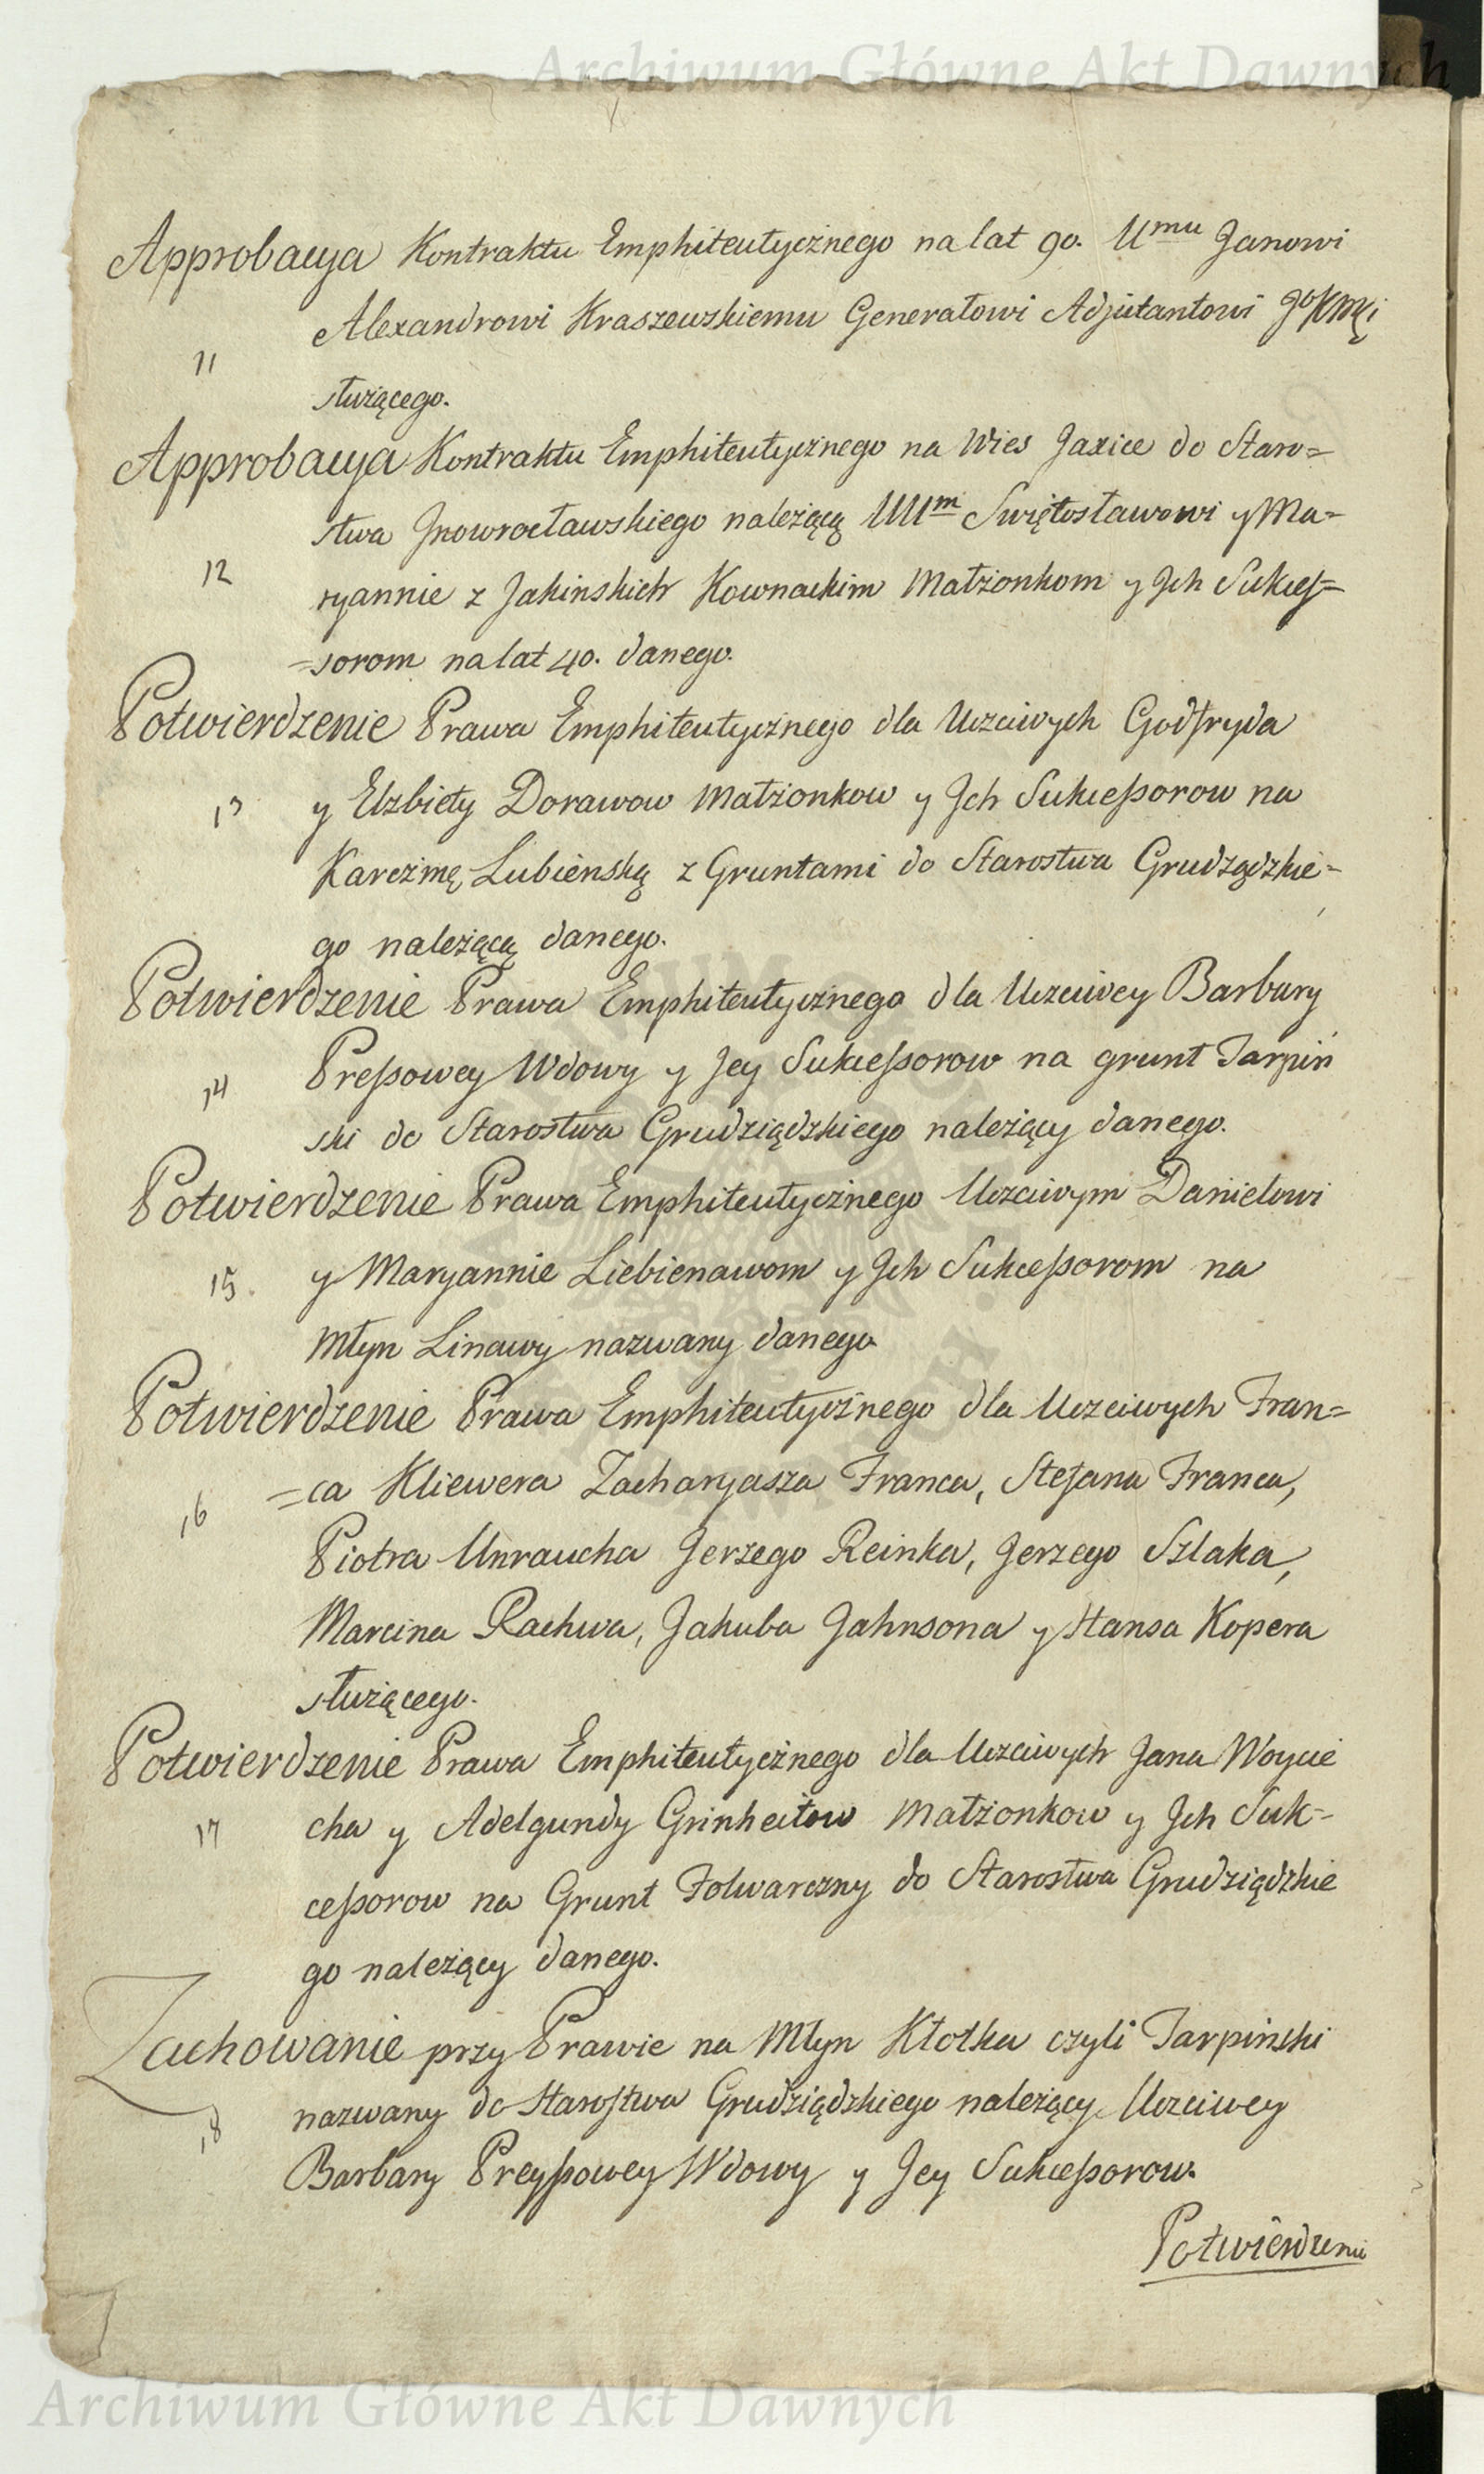 Archiwum Główne Akt Dawnych
Approbacya Kontraktu Emphiteutycznego na lat 90. Umu Janowi
Alexandrowi Kraszewskiemu Generałowi Adjutantowi JoKMći
11
służącego.
Approbacya Kontraktu Emphiteutycznego na Wies Jaxice do Staro=
stwa Jnowrocławskiego należącą UUm Swiętosławowi y Ma=
12
ryannie z Jakinskich Kownackim Małżonkom y Jch Sukces=
=sorom na lat 40. danego.
Potwierdzenie Prawa Emphiteutycznego dla Uczciwych Godfryda
13 y Elzbiety Dorawow Małżonkow y Jch Sukceßorow na
Karczmę Lubieńską z Gruntami do Starostwa Grudządzkie=
go należącą danego.
Potwierdzenie Prawa Emphiteutycznego dla Uczciwey Barbary
14 Preßowey Wdowy y Jey Sukceßorow na grunt Tarpiń
ski do Starostwa Grudziądzkiego należący danego.
Potwierdzenie Prawa Emphiteutycznego Uczciwym Danielowi
15. y Maryannie Liebienawom y Jch Sukceßorom na
Młyn Linawy nazwany danego
Potwierdzenie Prawa Emphiteutycznego dla Uczciwych Fran=
16 =ca Kliewera Zacharyasza Franca, Stefana Franca,
Piotra Unraucha Jerzego Reinka, Jerzego Szlaka,
Marcina Rachwa, Jakuba Jahnsona y Hansa Kopera
służącego.
Potwierdzenie Prawa Emphiteutycznego dla Uczciwych Jana Woycie
17 cha y Adelgundy Grinheitow Małżonkow y Jch Suk=
ceßorow na Grunt Folwarczny do Starostwa Grudziądzkie
go należący danego.
Zachowanie przy Prawie na Młyn Kłotka czyli Tarpiński
nazwany do Starostwa Grudziądzkiego należący Uczciwey
18
Barbary Preyßowey Wdowy y Jey Sukceßorow.
Potwierdzenie
Archiwum Główne Akt Dawnych